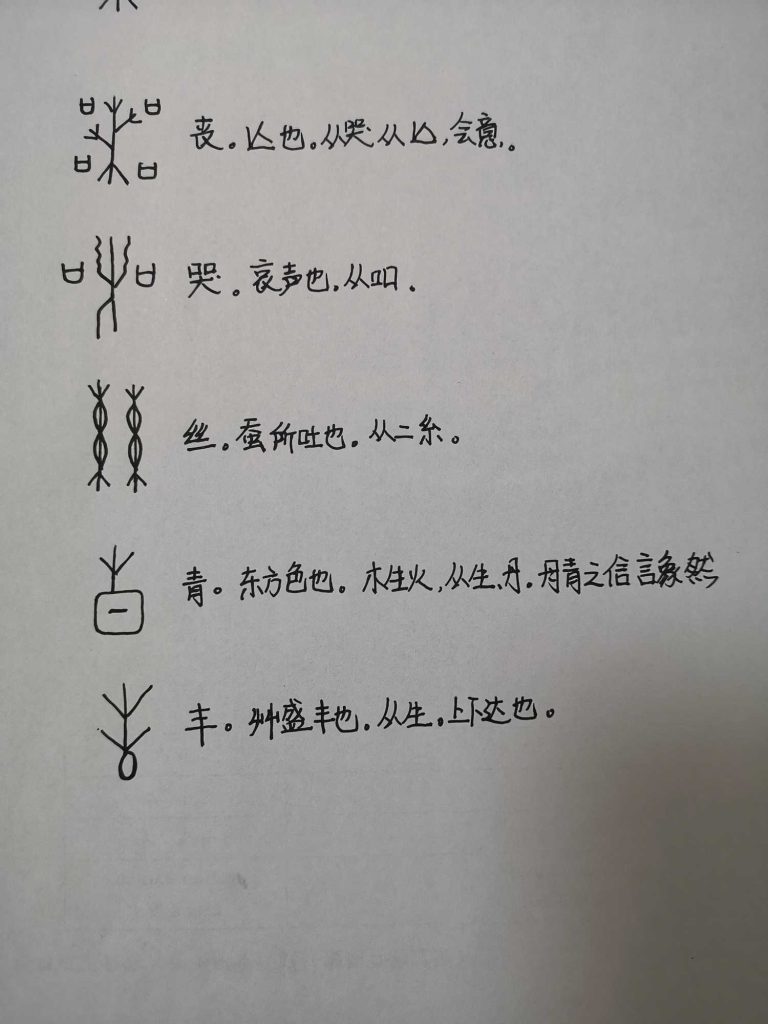 丧。亾也。从哭从亾,会意。
哭。哀声也。从吅.
丝。蚕所吐也。从二糸。
青。东方色也。木生火,从生、丹。丹青之信言象然
丰。艸盛丰也。从生。上下达也。